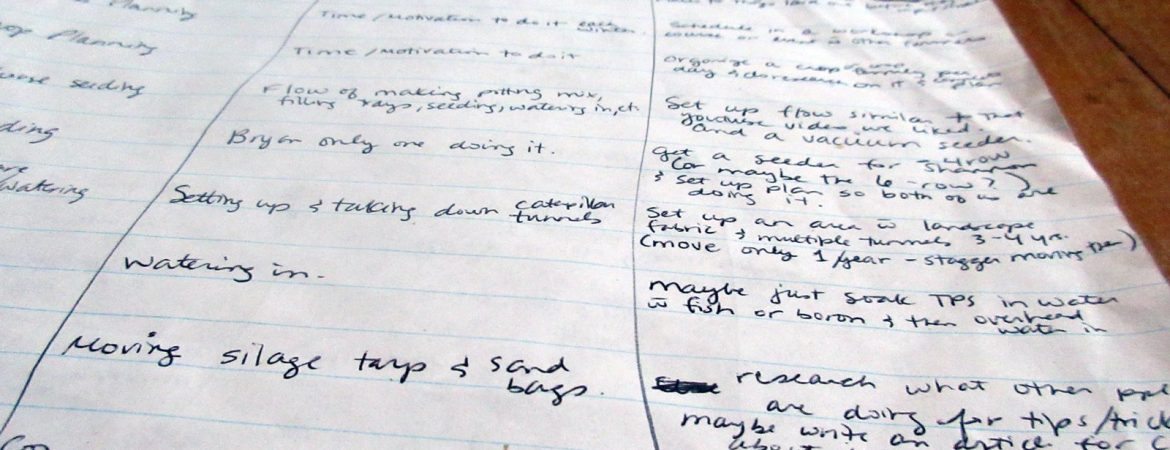 Planning
Time/Motivation to do it each
winter.
schedule in a workshop or
course or
other farmers
op Planning
Time/Motivation to do it
Organize a crop
day &
on it
plan
oose seeding
Flow of making potting mix,
filling trays, seeding, watering in, etc.
Set up flow similar to that
youtube video we liked.
and a vacuum seeder.
ding
Bryan only one doing it.
get a seeder for 4 row
Shannon
(or maybe the 6-row?)
& set up plan so both of us are
doing it.
are
watering
Setting up & taking down caterpillar
tunnels
Set up an area w̄ landscape
fabric & multiple tunnels 3-4 yrs.
(move only 1/year - stagger moving them)
watering in.
maybe just soak TPS in water
w̄ fish or boron & then overhead
water in
Moving silage tarp & sand
bags.
research what other ppl
are doing for tips/trick
maybe write an article for
about